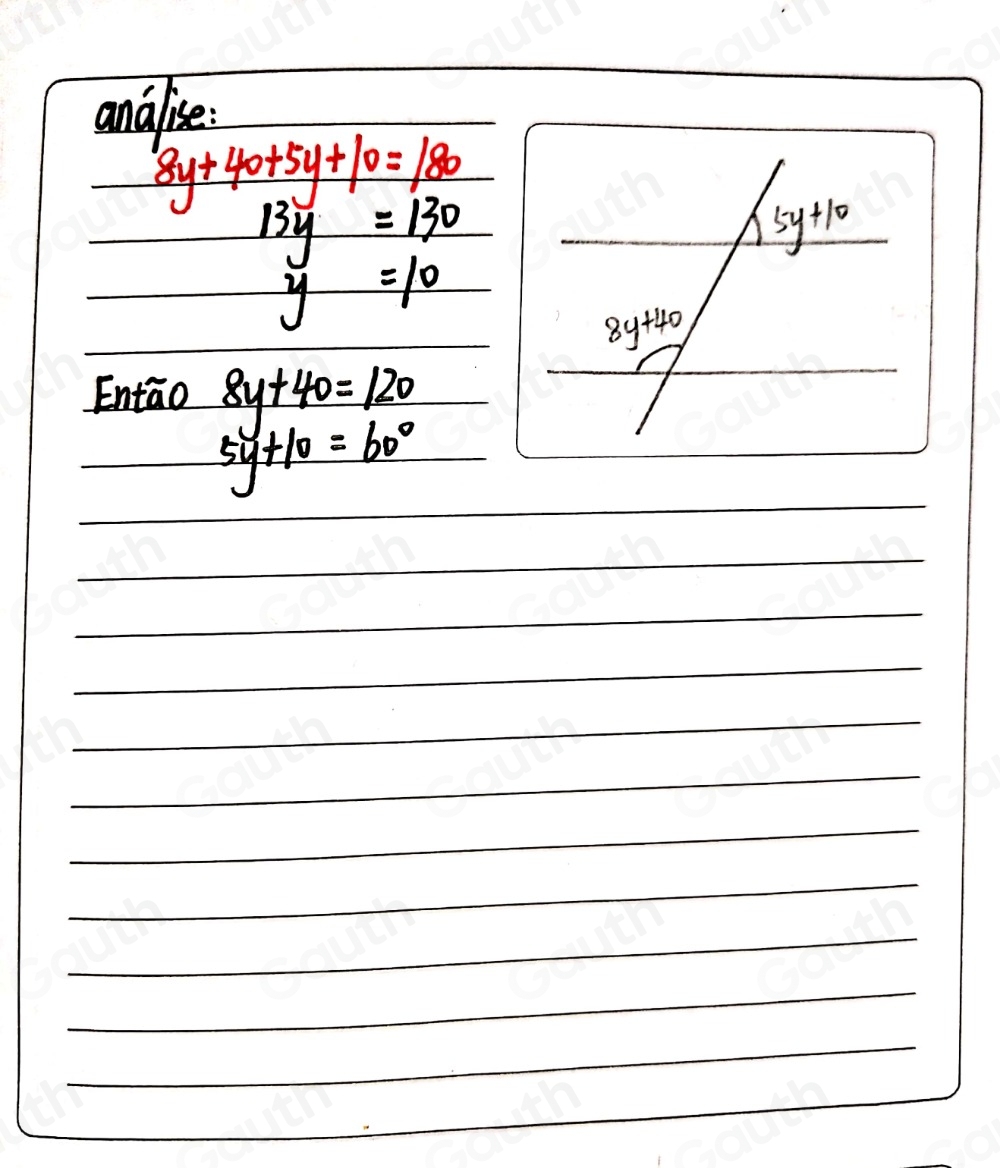 análise:
8y+40+5y+10=180
13y = 130
y = 10
Então 8y+40=120
5y+10 = 60°
5y+10
8y+40
Gauth